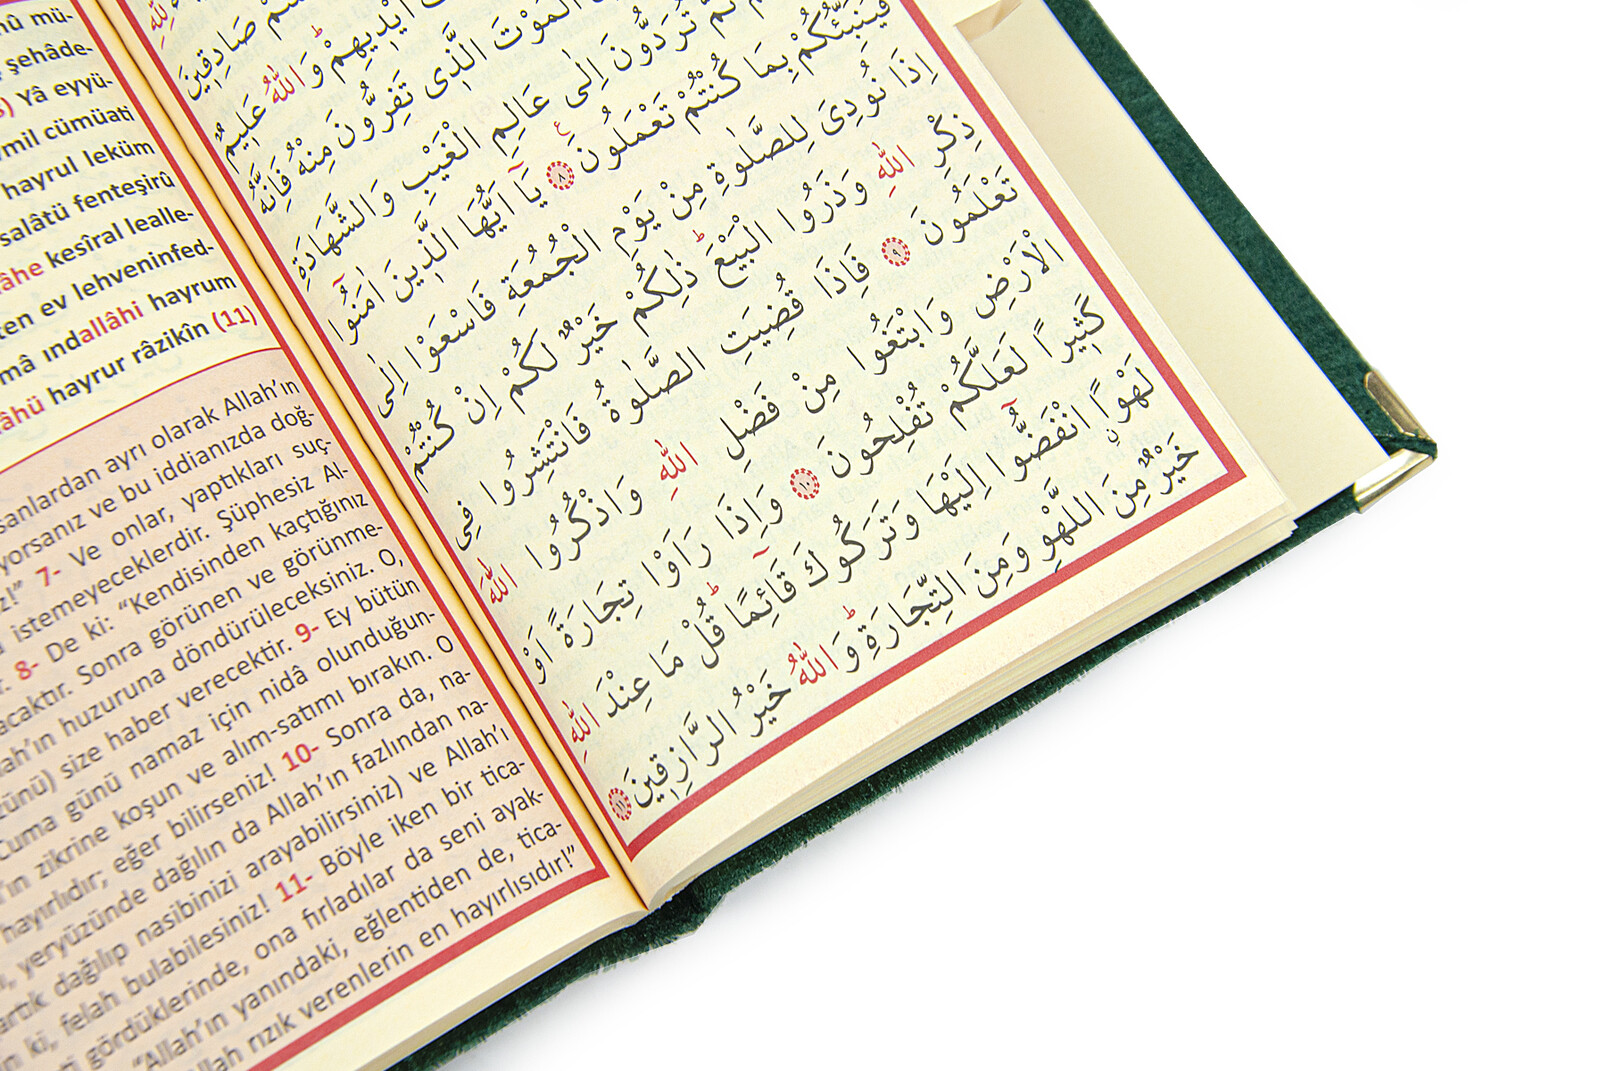 nû mü-
şehâde-
Yâ eyyü-
vmil cümüati
hayrul leküm
salâtü fenteşirû
lâhe kesîral lealle-
ten ev lehveninfed-
mâ ındallâhi hayrum
lâhü hayrur râzikîn (11)
sanlardan ayrı olarak Allah’ın
yorsanız ve bu iddianızda doğ-
z!” 7- Ve onlar, yaptıkları suç-
istemeyeceklerdir. Şüphesiz Al-
8- De ki: “Kendisinden kaçtığınız
acaktır. Sonra görünen ve görünme-
lah’ın huzuruna döndürüleceksiniz. O,
zünü) size haber verecektir. 9- Ey bütün
Cuma günü namaz için nidâ olunduğun-
’ın zikrine koşun ve alım-satımı bırakın. O
hayırlıdır; eğer bilirseniz! 10- Sonra da, na-
yeryüzünde dağılın da Allah’ın fazlından na-
artık dağılıp nasibinizi arayabilirsiniz) ve Allah’ı
n ki, felah bulabilesiniz! 11- Böyle iken bir tica-
ti gördüklerinde, ona fırladılar da seni ayak-
“Allah’ın yanındaki, eğlentiden de, tica-
llah rızık verenlerin en hayırlısıdır!”
صَادِقِينَ
اَيْدِيهِمْ وَاللّٰهُ عَلِيمٌ
الْمَوْتَ الَّذِى تَفِرُّونَ مِنْهُ فَاِنَّهُ
تُرَدُّونَ اِلٰى عَالِمِ الْغَيْبِ وَالشَّهَادَةِ
فَيُنَبِّئُكُمْ بِمَا كُنْتُمْ تَعْمَلُونَ ﴿٨﴾ يَٓا اَيُّهَا الَّذِينَ اٰمَنُٓوا
اِذَا نُودِىَ لِلصَّلٰوةِ مِنْ يَوْمِ الْجُمُعَةِ فَاسْعَوْا اِلٰى
ذِكْرِ اللّٰهِ وَذَرُوا الْبَيْعَ ذٰلِكُمْ خَيْرٌ لَكُمْ اِنْ كُنْتُمْ
تَعْلَمُونَ ﴿٩﴾ فَاِذَا قُضِيَتِ الصَّلٰوةُ فَانْتَشِرُوا فِى
الْاَرْضِ وَابْتَغُوا مِنْ فَضْلِ اللّٰهِ وَاذْكُرُوا اللّٰهَ
كَثِيرًا لَعَلَّكُمْ تُفْلِحُونَ ﴿١٠﴾ وَاِذَا رَاَوْا تِجَارَةً اَوْ
لَهْوًا انْفَضُّٓوا اِلَيْهَا وَتَرَكُوكَ قَٓائِمًا قُلْ مَا عِنْدَ اللّٰهِ
خَيْرٌ مِنَ اللَّهْوِ وَمِنَ التِّجَارَةِ وَاللّٰهُ خَيْرُ الرَّازِقِينَ ﴿١١﴾